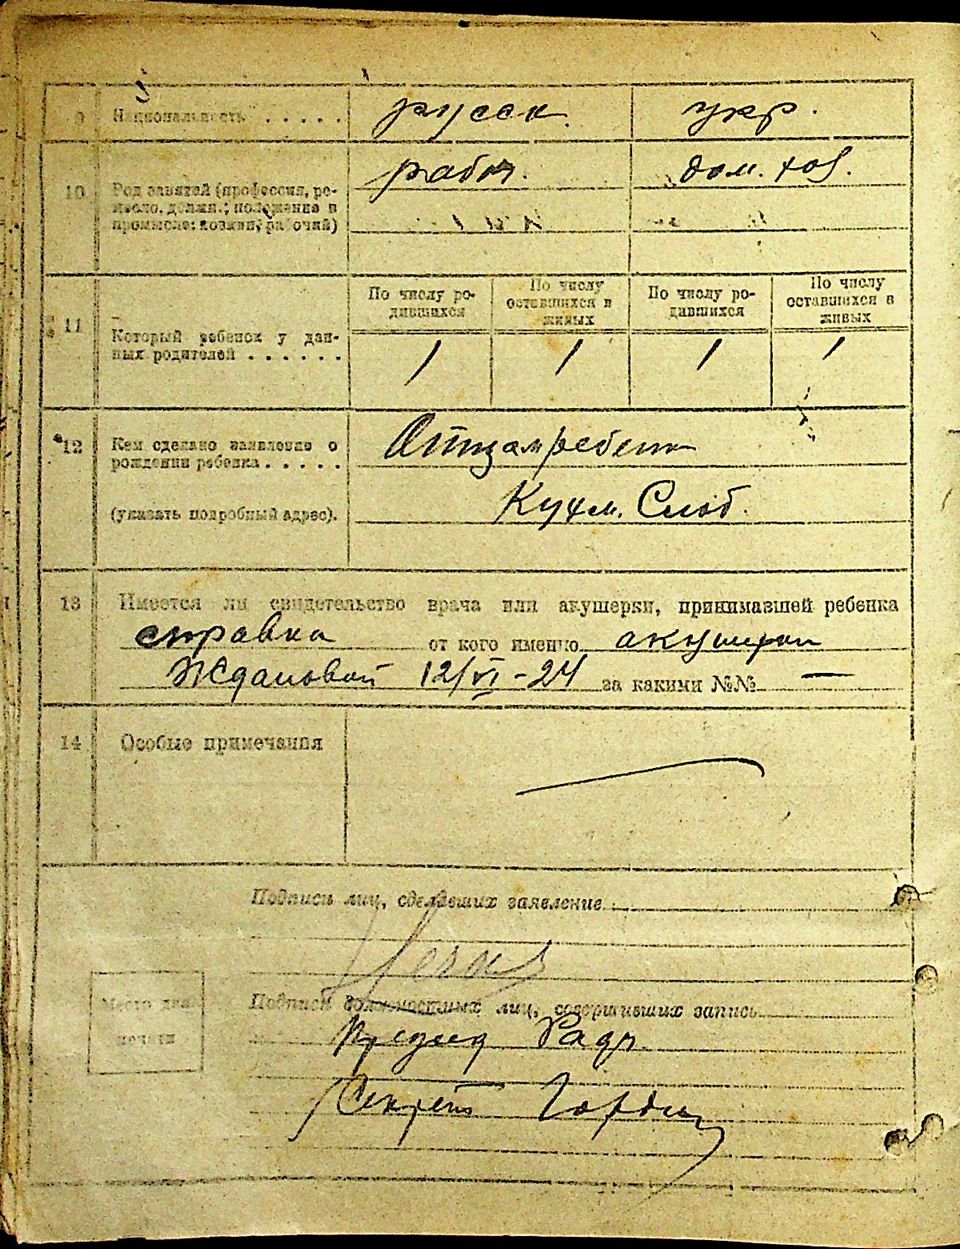 9 Национальность . . . . . русск. укр.
10 Род занятий (профессия, ре- рабоч. дом. хоз.
месло. должн.; положение в
промысле: хозяин, рабочий)
По числу ро- По числу По числу ро- По числу
дившихся оставшихся в дившихся оставшихся в
живых живых
11 Который ребенок у дан- 1 1 1 1
ных родителей . . . . . .
12 Кем сделано заявление о Отцом ребенк
рождении ребенка . . . . .
(указать подробный адрес). Кухм. Слоб.
13 Имеется ли свидетельство врача или акушерки, принимавшей ребенка
справка от кого именно акушерки
Ждановой 12/VI - 24 за какими №№ —
14 Особые примечания
Подписи лиц, сделавших заявление
Подписи должностных лиц, совершивших запись
Место для
печати
Председ
Секрет